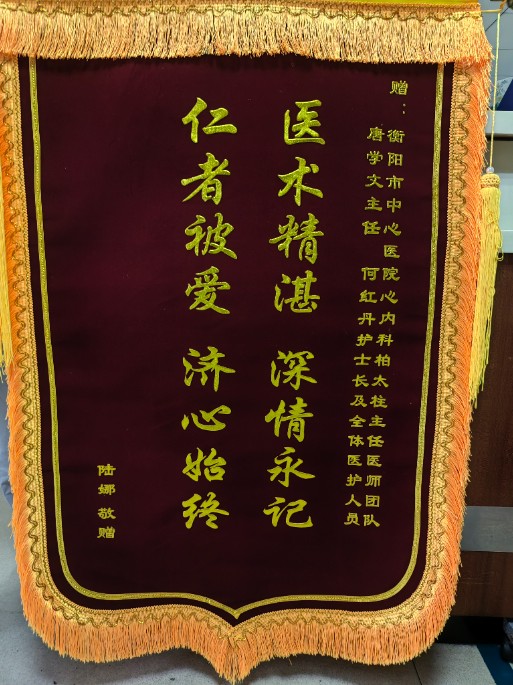 赠：衡阳市中心医院心内科柏太柱主任医师团队
唐学文主任 何红丹护士长及全体医护人员
医术精湛 深情永记
仁者被爱 济心始终
陆娜 敬赠